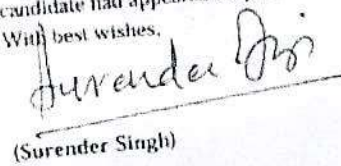 candidate had appeared
With best wishes,
Surender
(Surender Singh)